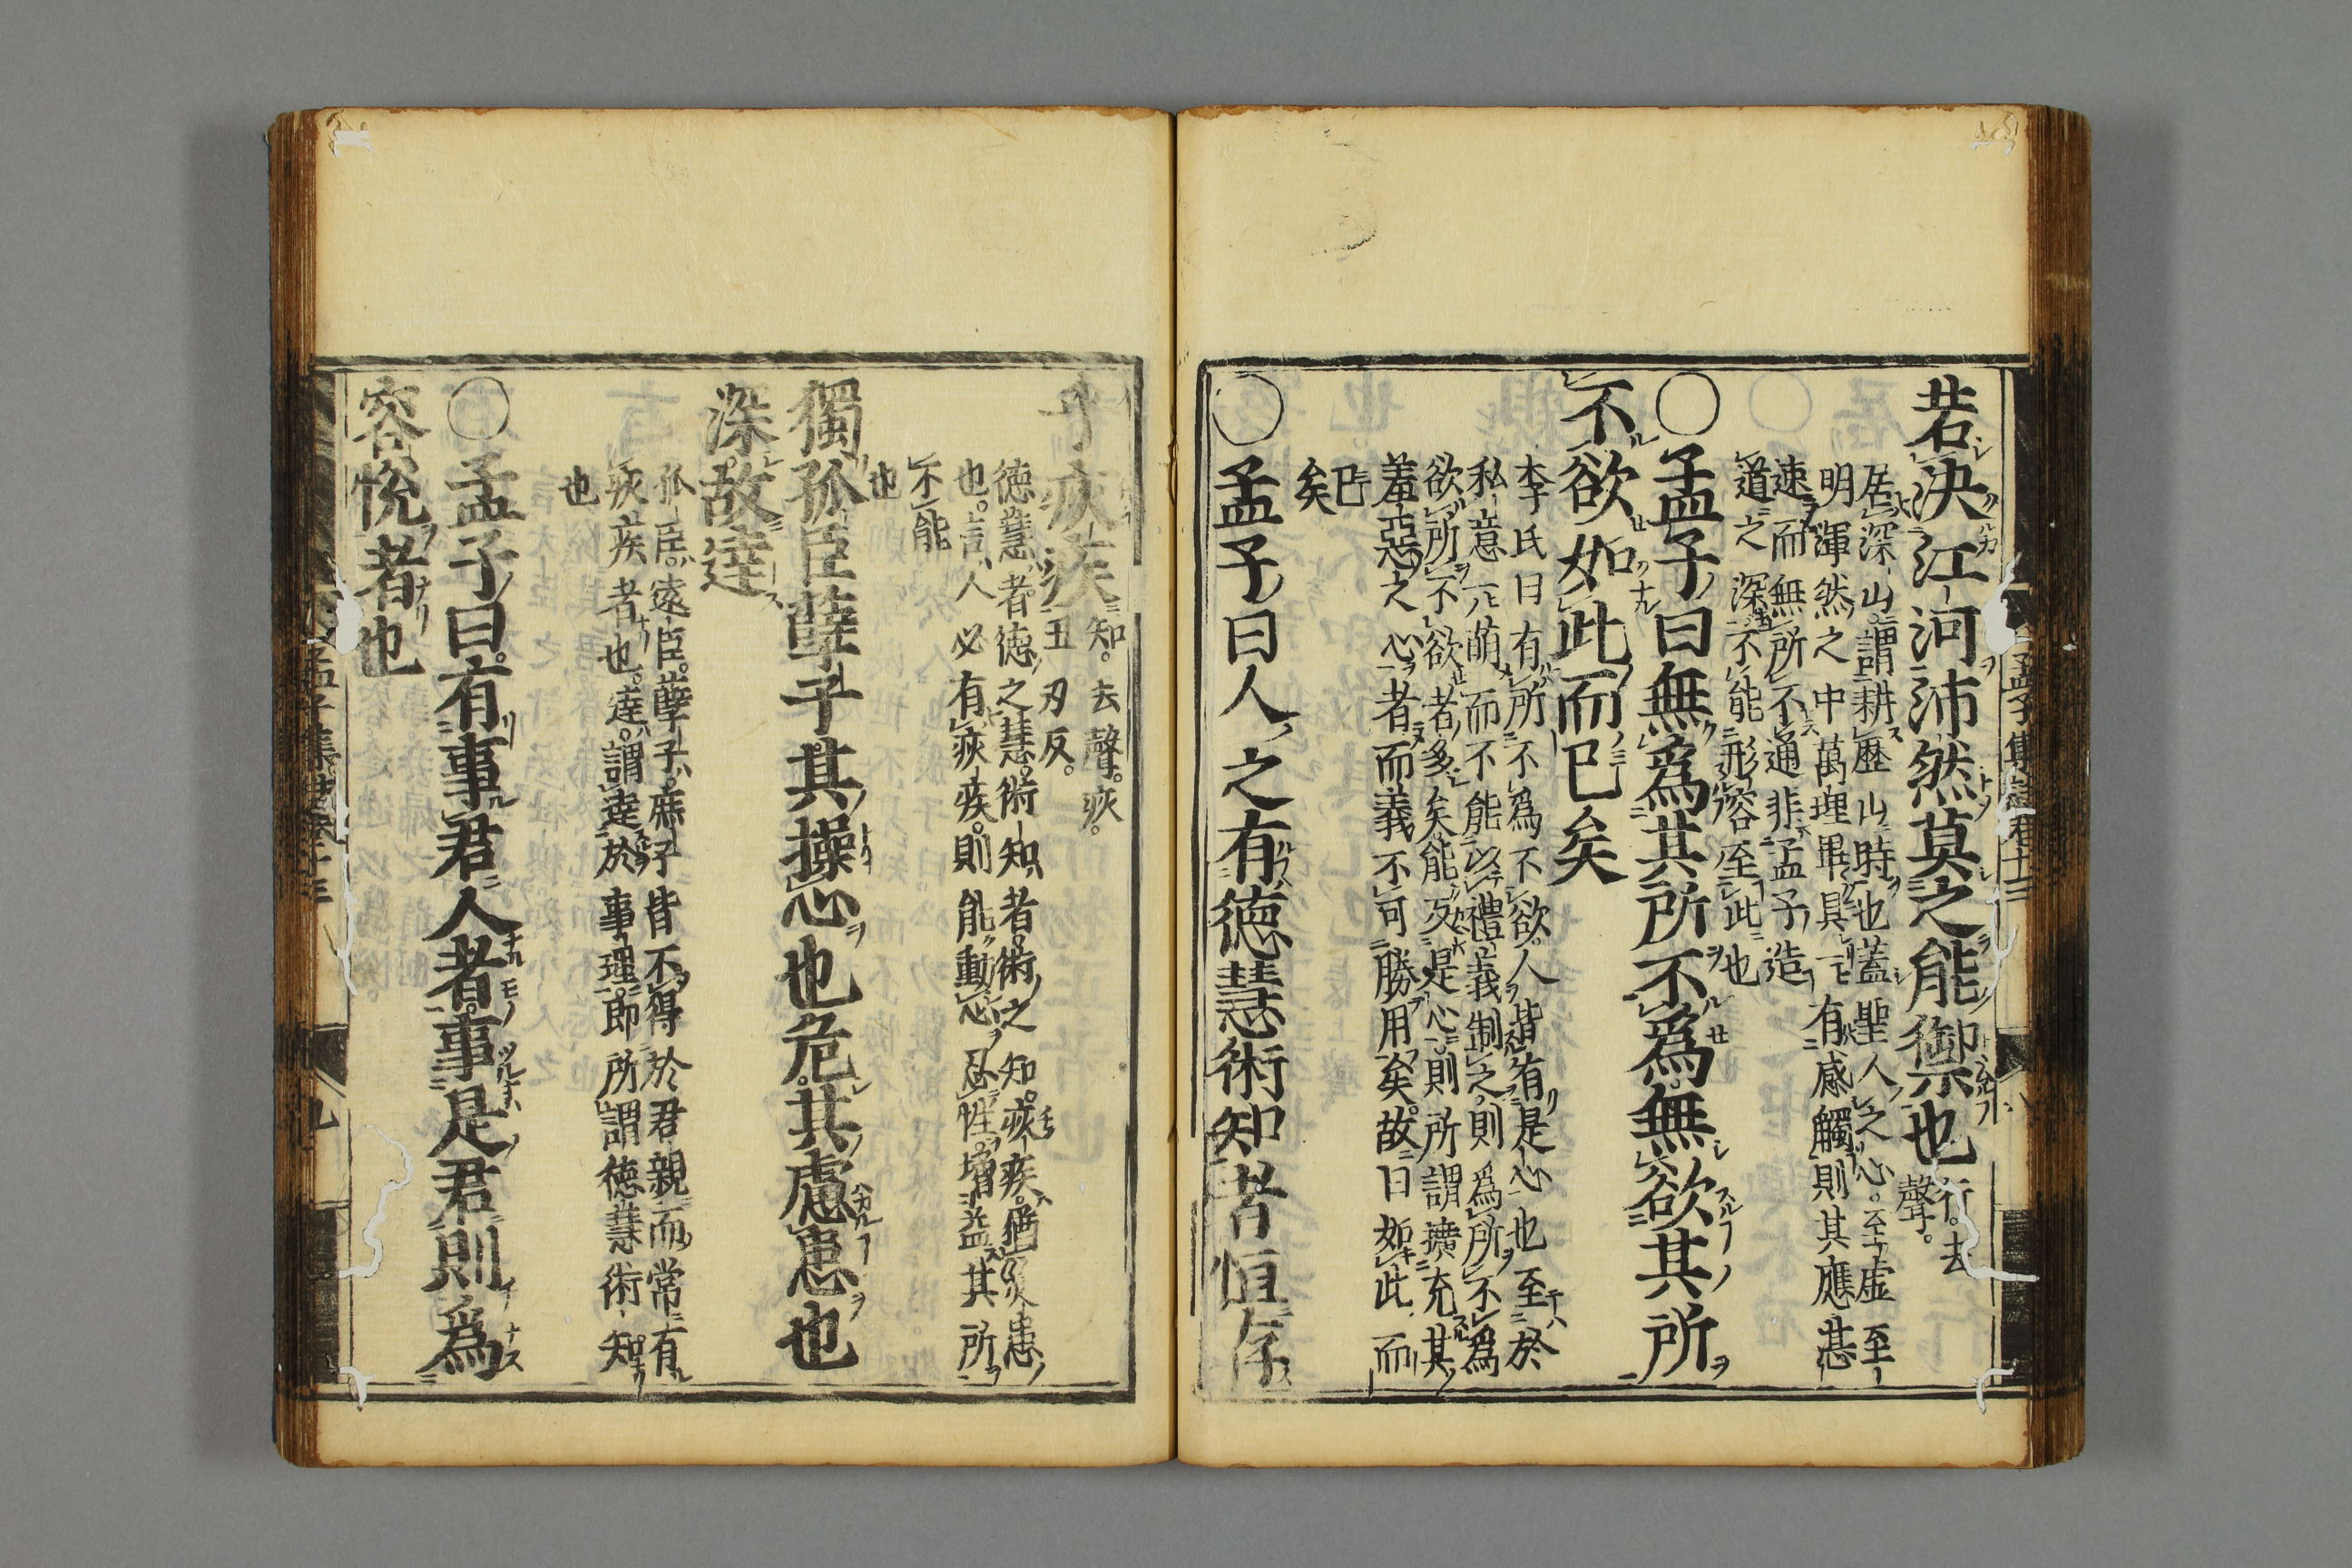 若決江河沛然莫之能禦也行。去
聲。
居深山。謂耕歷山時也蓋聖人之心。至虛至
明渾然之中萬理畢具一有感觸則其應甚
速而無所不通非孟子造
道之深不能形容至此也
○孟子曰無為其所不為。無欲其所
不欲如此而已矣
李氏曰有所不為不欲。人皆有是心也至於
私意一萌而不能以禮義制之。則為所不為
欲所不欲者多矣能反是心則所謂擴充其
羞惡之心者而義不可勝用矣。故曰如此而
已
矣
○孟子曰人之有德慧術知者恒存
乎疢疾知。去聲。疢。
丑刃反。
德慧者德之慧。術知者。術之知。疢疾。猶災患
也。言人必有疢疾。則能動心忍性。增益其所
不能
也
獨孤臣孽子其操心也危。其慮患也
深。故達
孤臣。遠臣。孽子。庶子皆不得於君親而常有
疢疾者也。達。謂達於事理。即所謂德慧術知
也
○孟子曰。有事君人者。事是君則為
容悅者也
孟子集註卷十三
九